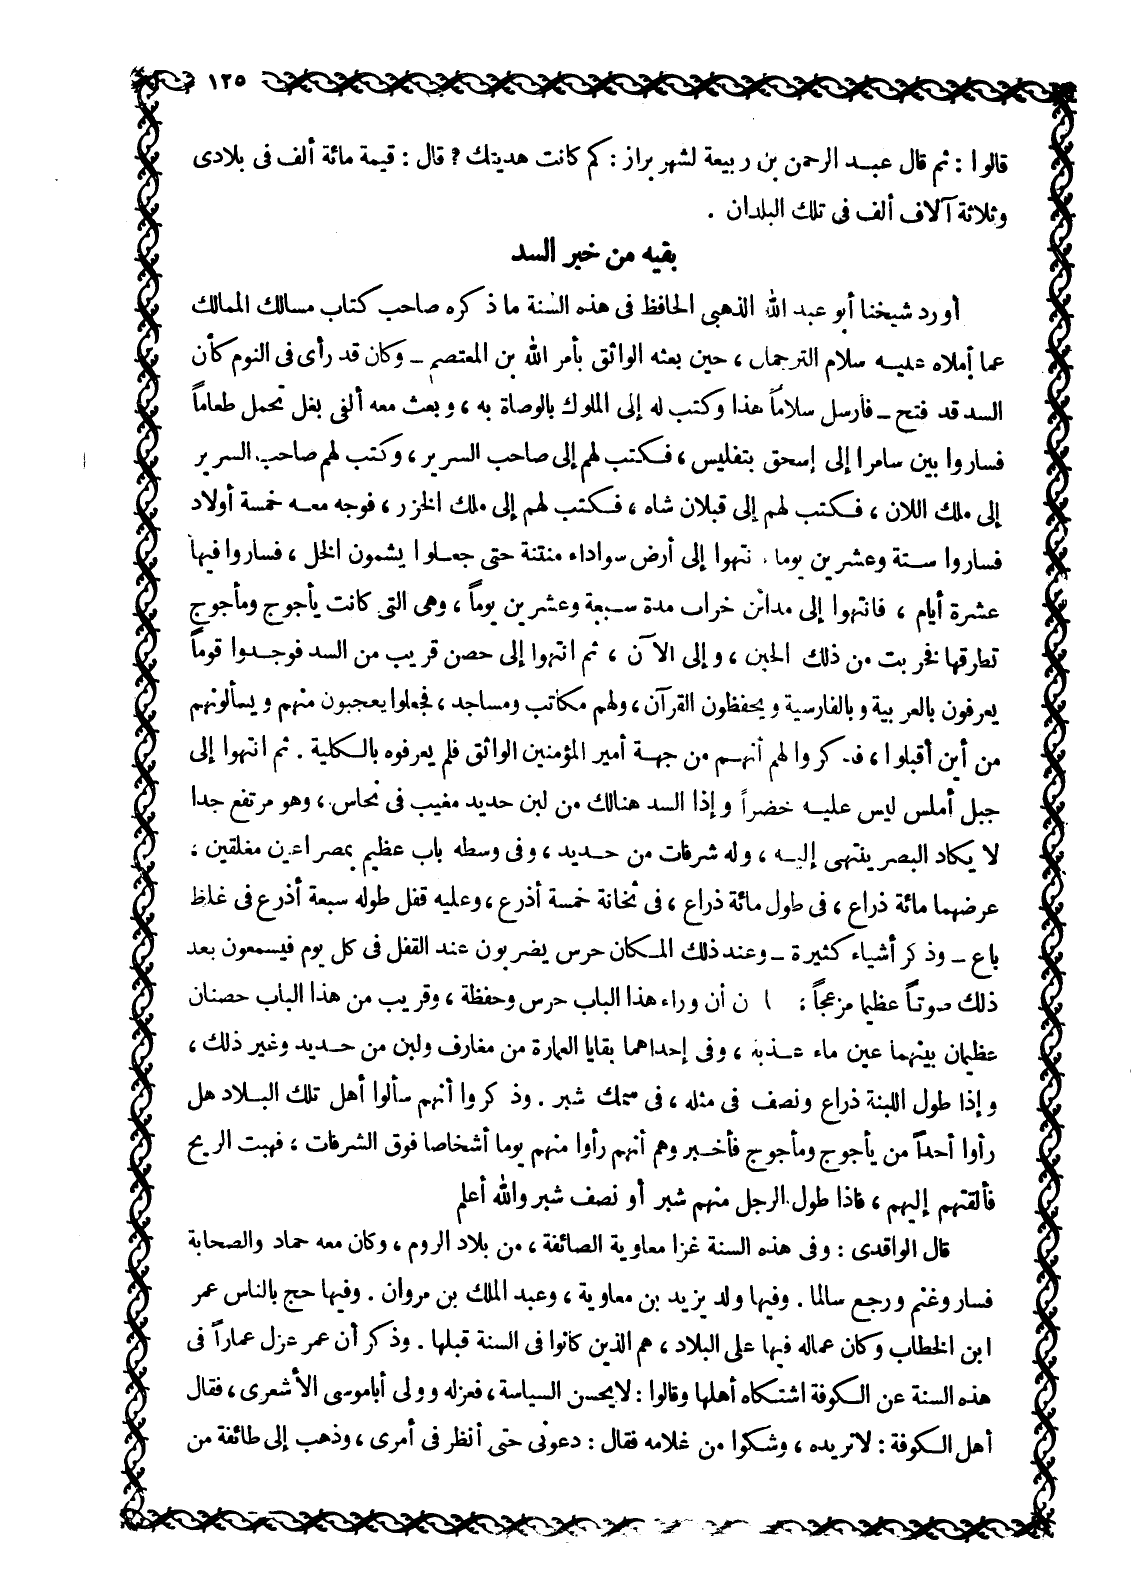 ١٢٥
قالوا : ثم قال عبد الرحمن بن ربيعة لشهر براز : كم كانت هديتك ? قال : قيمة مائة ألف فى بلادى
وثلاثة آلاف ألف فى تلك البلدان .
بقيه من خبر السد
أورد شيخنا أبو عبد الله الذهبى الحافظ فى هذه السنة ما ذكره صاحب كتاب مسالك الممالك
عما أملاه عليه سلام الترجمان ، حين بعثه الواثق بأمر الله بن المعتصم ــ وكان قد رأى فى النوم كأن
السد قد فتح ــ فأرسل سلاماً هذا وكتب له إلى الملوك بالوصاة به ، وبعث معه ألفى بغل تحمل طعاماً
فساروا بين سامرا إلى إسحق بتفليس ، فكتب لهم إلى صاحب السرير ، وكتب لهم صاحب السرير
إلى ملك اللان ، فكتب لهم إلى قبلان شاه ، فكتب لهم إلى ملك الخزر ، فوجه معه خمسة أولاد
فساروا ستة وعشرين يوما . نتهوا إلى أرض سواداء منتنة حتى جعلوا يشمون الخل ، فساروا فيها
عشرة أيام ، فانتهوا إلى مدائن خراب مدة سبعة وعشرين يوماً ، وهى التى كانت يأجوج ومأجوج
تطرقها فخربت من ذلك الحين ، وإلى الآن ، ثم انتهوا إلى حصن قريب من السد فوجدوا قوماً
يعرفون بالعربية وبالفارسية ويحفظون القرآن ، ولهم مكاتب ومساجد ، فجعلوا يعجبون منهم ويسألونهم
من أين أقبلوا ، فذكروا لهم أنهم من جهة أمير المؤمنين الواثق فلم يعرفوه بالكلية . ثم انتهوا إلى
جبل أملس ليس عليه خضراً وإذا السد هنالك من لبن حديد مغيب فى نحاس ، وهو مرتفع جدا
لا يكاد البصر ينتهى إليه ، وله شرفات من حديد ، وفى وسطه باب عظيم بمصراعين مغلقين ،
عرضهما مائة ذراع ، فى طول مائة ذراع ، فى ثخانة خمسة أذرع ، وعليه قفل طوله سبعة أذرع فى غلظ
باع ــ وذكر أشياء كثيرة ــ وعند ذلك المكان حرس يضربون عند القفل فى كل يوم فيسمعون بعد
ذلك صوتاً عظيما مزعجاً ، أن وراء هذا الباب حرس وحفظة ، وقريب من هذا الباب حصنان
عظيمان بينهما عين ماء عذبة ، وفى إحداهما بقايا العمارة من مغارف ولبن من حديد وغير ذلك ،
وإذا طول اللبنة ذراع ونصف فى مثله ، فى سمك شبر . وذكروا أنهم سألوا أهل تلك البلاد هل
رأوا أحداً من يأجوج ومأجوج فأخبروهم أنهم رأوا منهم يوما أشخاصا فوق الشرفات ، فهبت الريح
فألقتهم إليهم ، فاذا طول الرجل منهم شبر أو نصف شبر والله أعلم
قال الواقدى : وفى هذه السنة غزا معاوية الصائفة ، من بلاد الروم ، وكان معه حماد والصحابة
فسار وغنم ورجع سالما . وفيها ولد يزيد بن معاوية ، وعبد الملك بن مروان . وفيها حج بالناس عمر
ابن الخطاب وكان عماله فيها على البلاد ، هم الذين كانوا فى السنة قبلها . وذكر أن عمر عزل عماراً فى
هذه السنة عن الكوفة اشتكاه أهلها وقالوا : لا يحسن السياسة ، فعزله وولى أبا موسى الأشعرى ، فقال
أهل الكوفة : لا نريده ، وشكوا من غلامه فقال : دعونى حتى أنظر فى أمرى ، وذهب إلى طائفة من